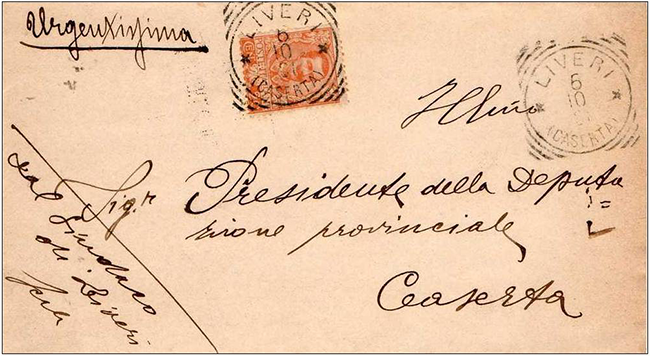 Urgentissima
LIVERI
6
10
(CASERTA)
LIVERI
6
10
(CASERTA)
Illmo
Sig.r Presidente della Deputa
zione provinciale
Caserta
Dal Sindaco
di Liveri